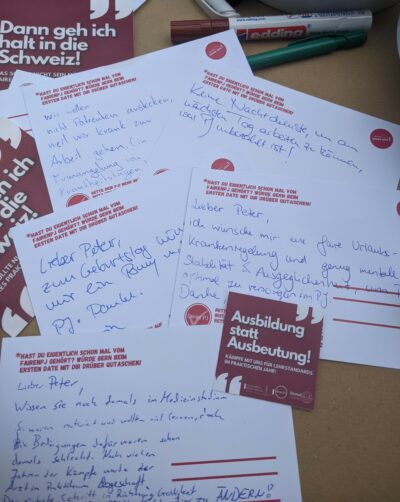 Dann geh ich
halt in die
Schweiz!
edding
*HAST DU EIGENTLICH SCHON MAL VOM
FAIRENPJ GEHÖRT? WÜRDE GERN BEIM
ERSTEN DATE MIT DIR DRÜBER QUTASCHEN!
Wir wollen
nicht Patienten anstecken,
weil wir krank zur
Arbeit gehen (in
Ermangelung von
Krankheitstagen)
*HAST DU EIGENTLICH SCHON MAL VOM
FAIRENPJ GEHÖRT? WÜRDE GERN BEIM
ERSTEN DATE MIT DIR DRÜBER QUTASCHEN!
Keine Nachtdienste, um am
nächsten Tag arbeiten zu können,
weil PJ unbezahlt ist!
*HAST DU EIGENTLICH SCHON MAL VOM
FAIRENPJ GEHÖRT? WÜRDE GERN BEIM
ERSTEN DATE MIT DIR DRÜBER QUTASCHEN!
Lieber Peter,
zum Geburtstag
mir ein
PJ. Danke.
*HAST DU EIGENTLICH SCHON MAL VOM
FAIRENPJ GEHÖRT? WÜRDE GERN BEIM
ERSTEN DATE MIT DIR DRÜBER QUTASCHEN!
Lieber Peter,
ich wünsche mir eine faire Urlaubs-
Krankenregelung und genug mentale
Stabilität & Ausgeglichenheit
zu versorgen im PJ.
Danke
Ausbildung
statt
Ausbeutung!
KÄMPFE MIT UNS FÜR LEHRSTANDARDS
IM PRAKTISCHEN JAHR!
*HAST DU EIGENTLICH SCHON MAL VOM
FAIRENPJ GEHÖRT? WÜRDE GERN BEIM
ERSTEN DATE MIT DIR DRÜBER QUTASCHEN!
Lieber Peter,
Wissen Sie noch damals im Medizinstudium
Sie waren motiviert und wollten viel lernen, doch
die Bedingungen dafür waren schon
damals schlecht. Nach vielen
Jahren der Kämpfe wurde der
Arzt im Praktikum abgeschafft
Schritt in Richtung Gerechtigkeit
ÄNDERN!